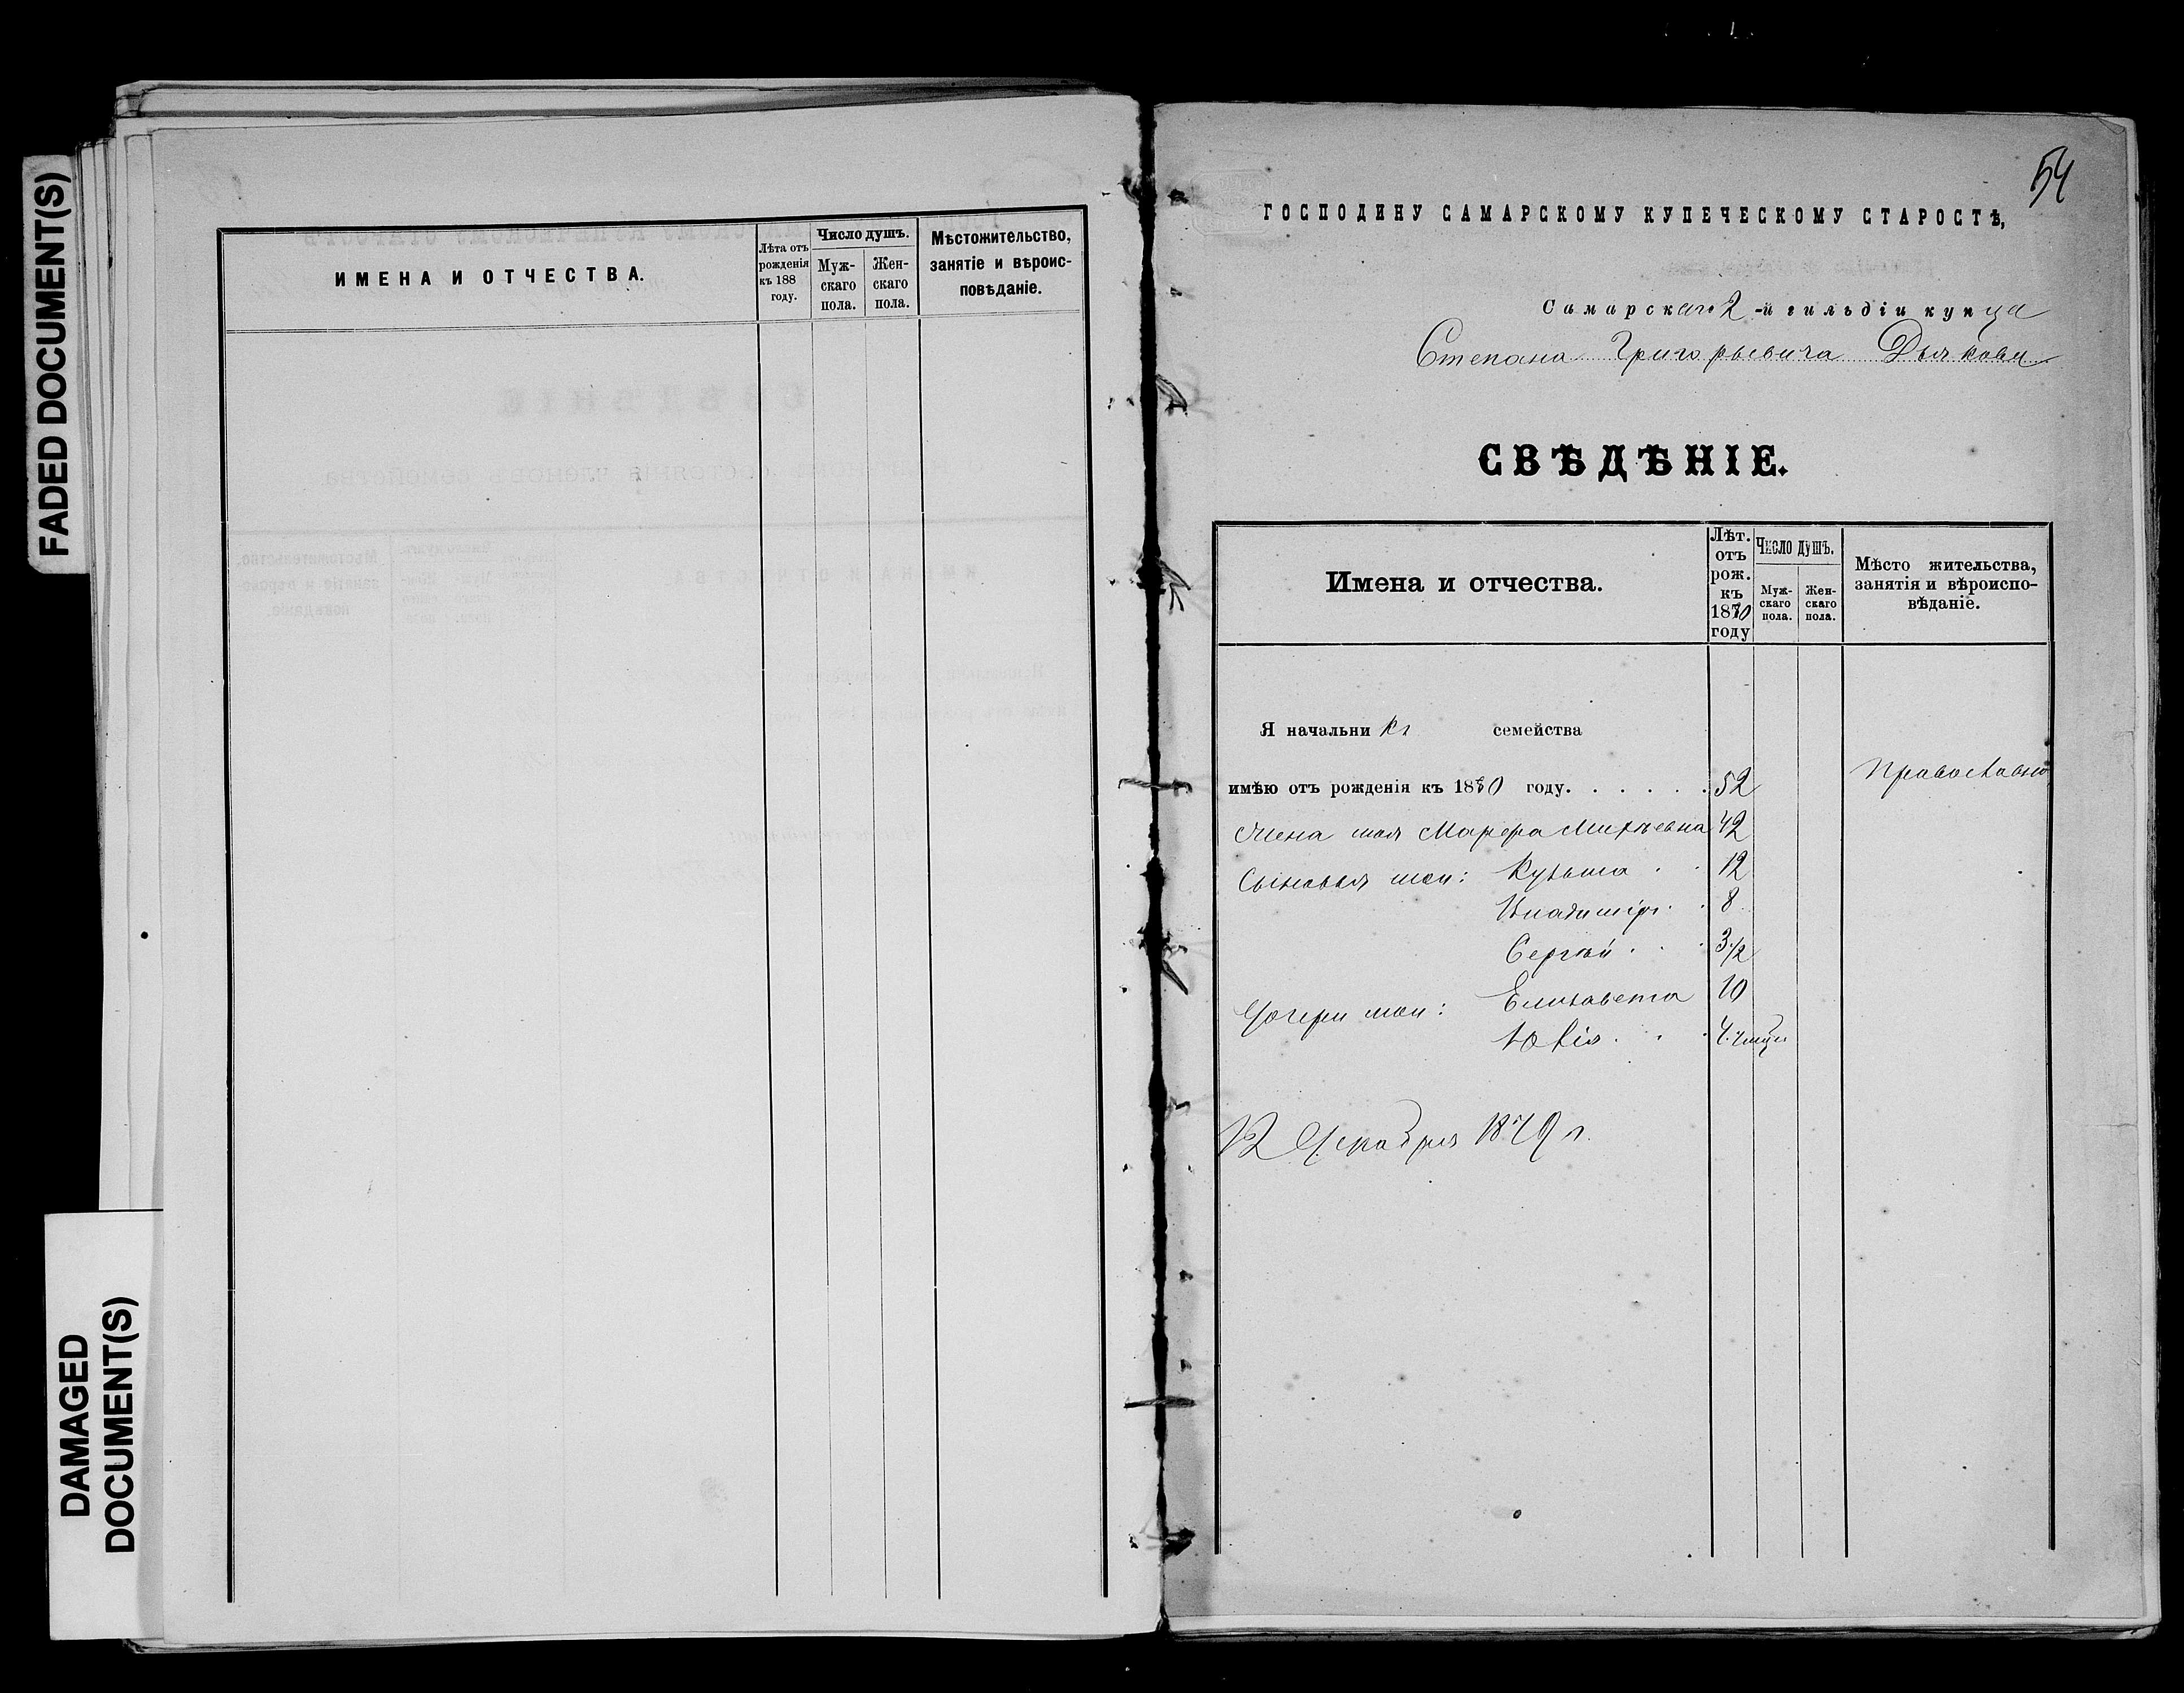 FADED DOCUMENT(S)
DAMAGED
DOCUMENT(S)
ИМЕНА И ОТЧЕСТВА.
Лѣта отъ
рожденія
къ 188
году.
Число душъ.
Муж-
скаго
пола.
Жен-
скаго
пола.
Мѣстожительство,
занятіе и вѣроис-
повѣданіе.
54
ГОСПОДИНУ САМАРСКОМУ КУПЕЧЕСКОМУ СТАРОСТѢ,
Самарскаго 2-й гильдіи купца
Степана Григорьевича Дьякова
СВѢДѢНІЕ.
Имена и отчества.
Лѣт.
отъ
рож.
къ
1880
году
Число душъ.
Муж-
скаго
пола.
Жен-
скаго
пола.
Мѣсто жительства,
занятія и вѣроиспо-
вѣданіе.
Я начальникъ семейства
имѣю отъ рожденія къ 1880 году. . . . . . 52 Православно
Жена моя Марфа 42
Сыновья мои: Кузьма . . 12
Владиміръ . . 8
Сергѣй . . . 3 1/2
Дочери мои: Елизавета 10
Юлія . . . 4
12 Декабря 1879 г.